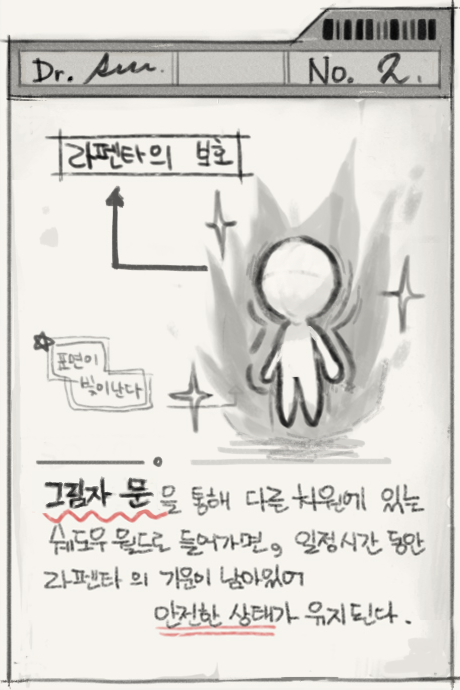 Dr. No. 2.
라펜타의 보호
표면이
빛이난다
그림자 문을 통해 다른 차원에 있는
쉐도우 월드로 들어가면, 일정시간 동안
라펜타의 기운이 남아있어
안전한 상태가 유지된다.